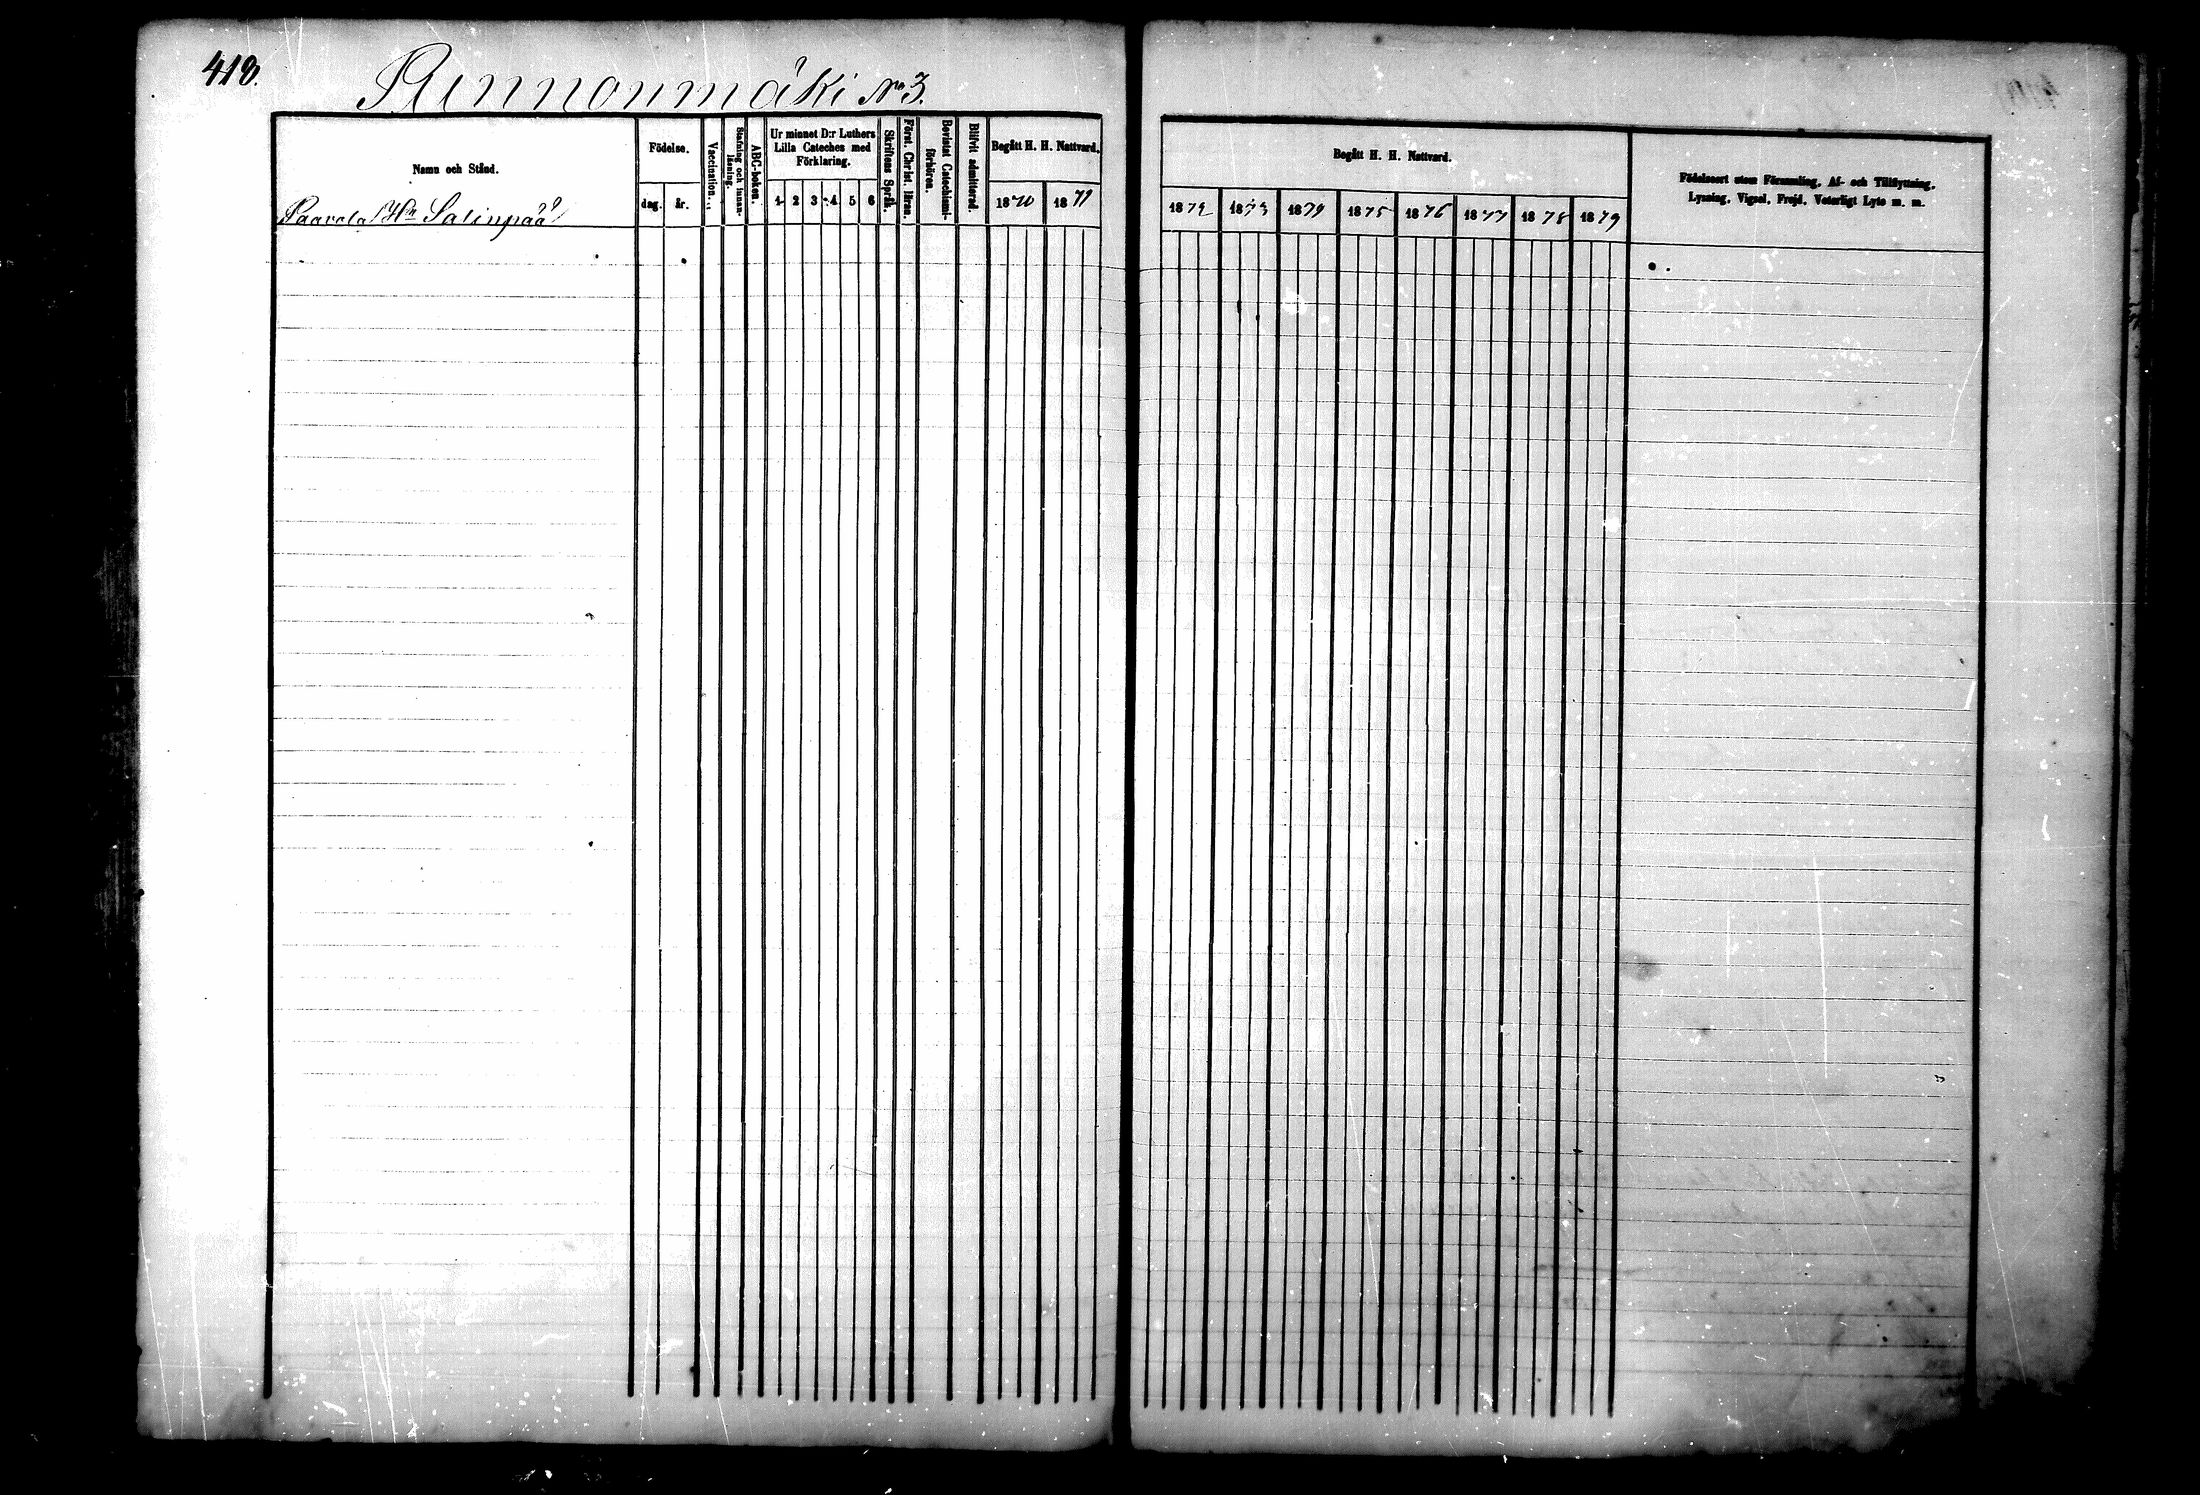 418.
Punnonmäki No 3.
Namn och Stånd.
Paavola Hn Salinpää
Födelse.
dag. år.
Vaccination.
Stafning och innan-
läsning.
ABC-boken.
Ur minnet D:r Luthers
Lilla Cateches med
Förklaring.
1 2 3 4 5 6
Skriftens Språk.
Först. Christ. läran.
Bevistat Catechismi-
förhören.
Blifvit admitterad.
Begått H. H. Nattvard.
1870 1871
Begått H. H. Nattvard.
1872 1873 1874 1875 1876 1877 1878 1879
Födelseort utom Församling, Af- och Tillflyttning,
Lysning, Vigsel, Frejd, Veterligt Lyte m. m.